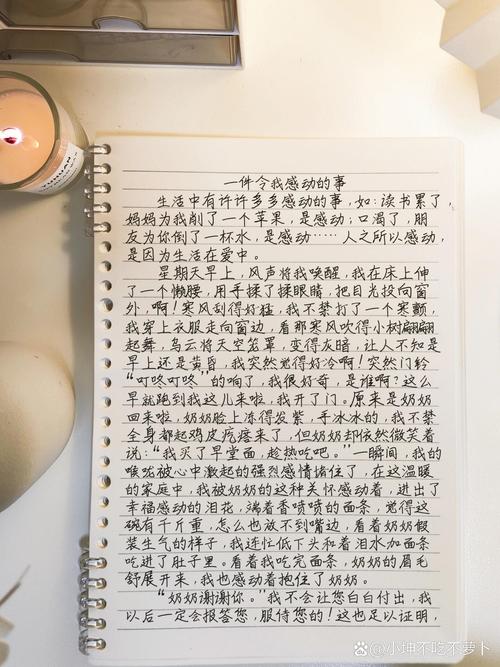 一件令我感动的事
生活中有许许多多感动的事,如:读书累了,
妈妈为我削了一个苹果,是感动,口渴了,朋
友为你倒了一杯水,是感动……人之所以感动,
是因为生活在爱中。
星期天早上,风声将我唤醒,我在床上伸
了一个懒腰,用手揉了揉眼睛,把目光投向窗
外,啊!寒风刮得好猛,我不禁打了一个寒颤,
我穿上衣服走向窗边,看那寒风吹得小树翩翩
起舞,乌云将天空笼罩,变得灰暗,让人不知是
早上还是黄昏,我突然觉得好冷啊!突然门铃
“叮咚叮咚”的响了,我很好奇,是谁啊?这么
早就跑到我这儿来啦,我开了门。原来是奶奶
回来啦,奶奶脸上冻得发紫,手冰冰的,我不禁
全身都起鸡皮疙瘩来了,但奶奶却依然微笑着
说:“我买了早堂面,趁热吃吧。”一瞬间,我的
喉咙被心中激起的强烈感情堵住了,在这温暖
的家庭中,我被奶奶的这种关怀感动着,迸出了
幸福感动的泪花,端着香喷喷的面条,觉得这
碗有千斤重,怎么也放不到嘴边,看着奶奶假
装生气的样子,我连忙低下头和着泪水加面条
吃进了肚子里。看着我吃完面条,奶奶的眉毛
舒展开来,我也感动着抱住了奶奶。
“奶奶谢谢你。”我不会让您白白付出,我
以后一定会报答您,服侍您的!这也足以证明,
小坤不吃不萝卜